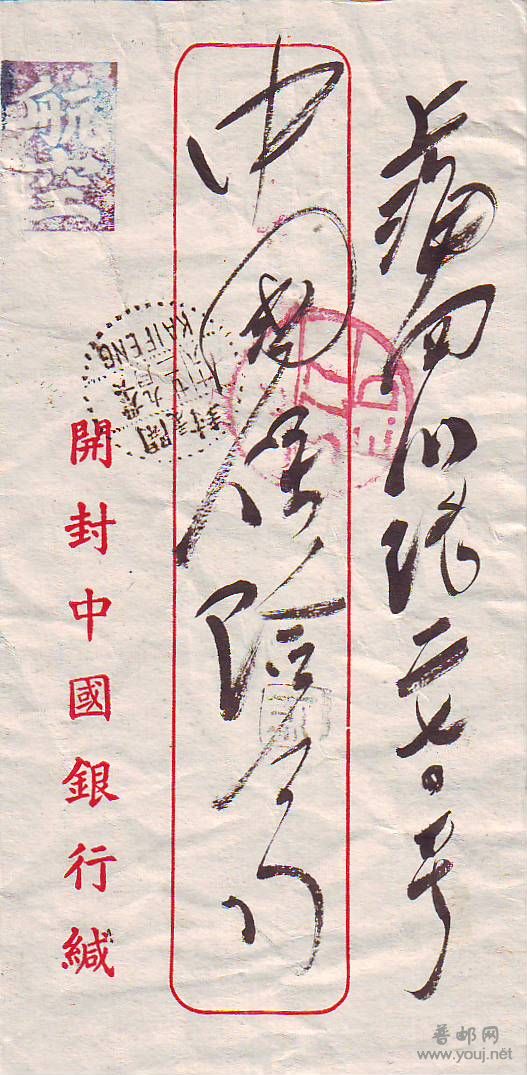 上海四川路二七〇号
中國保險公司
航空
KAIFENG
開封
開封中國銀行緘
普邮网
www.youj.net